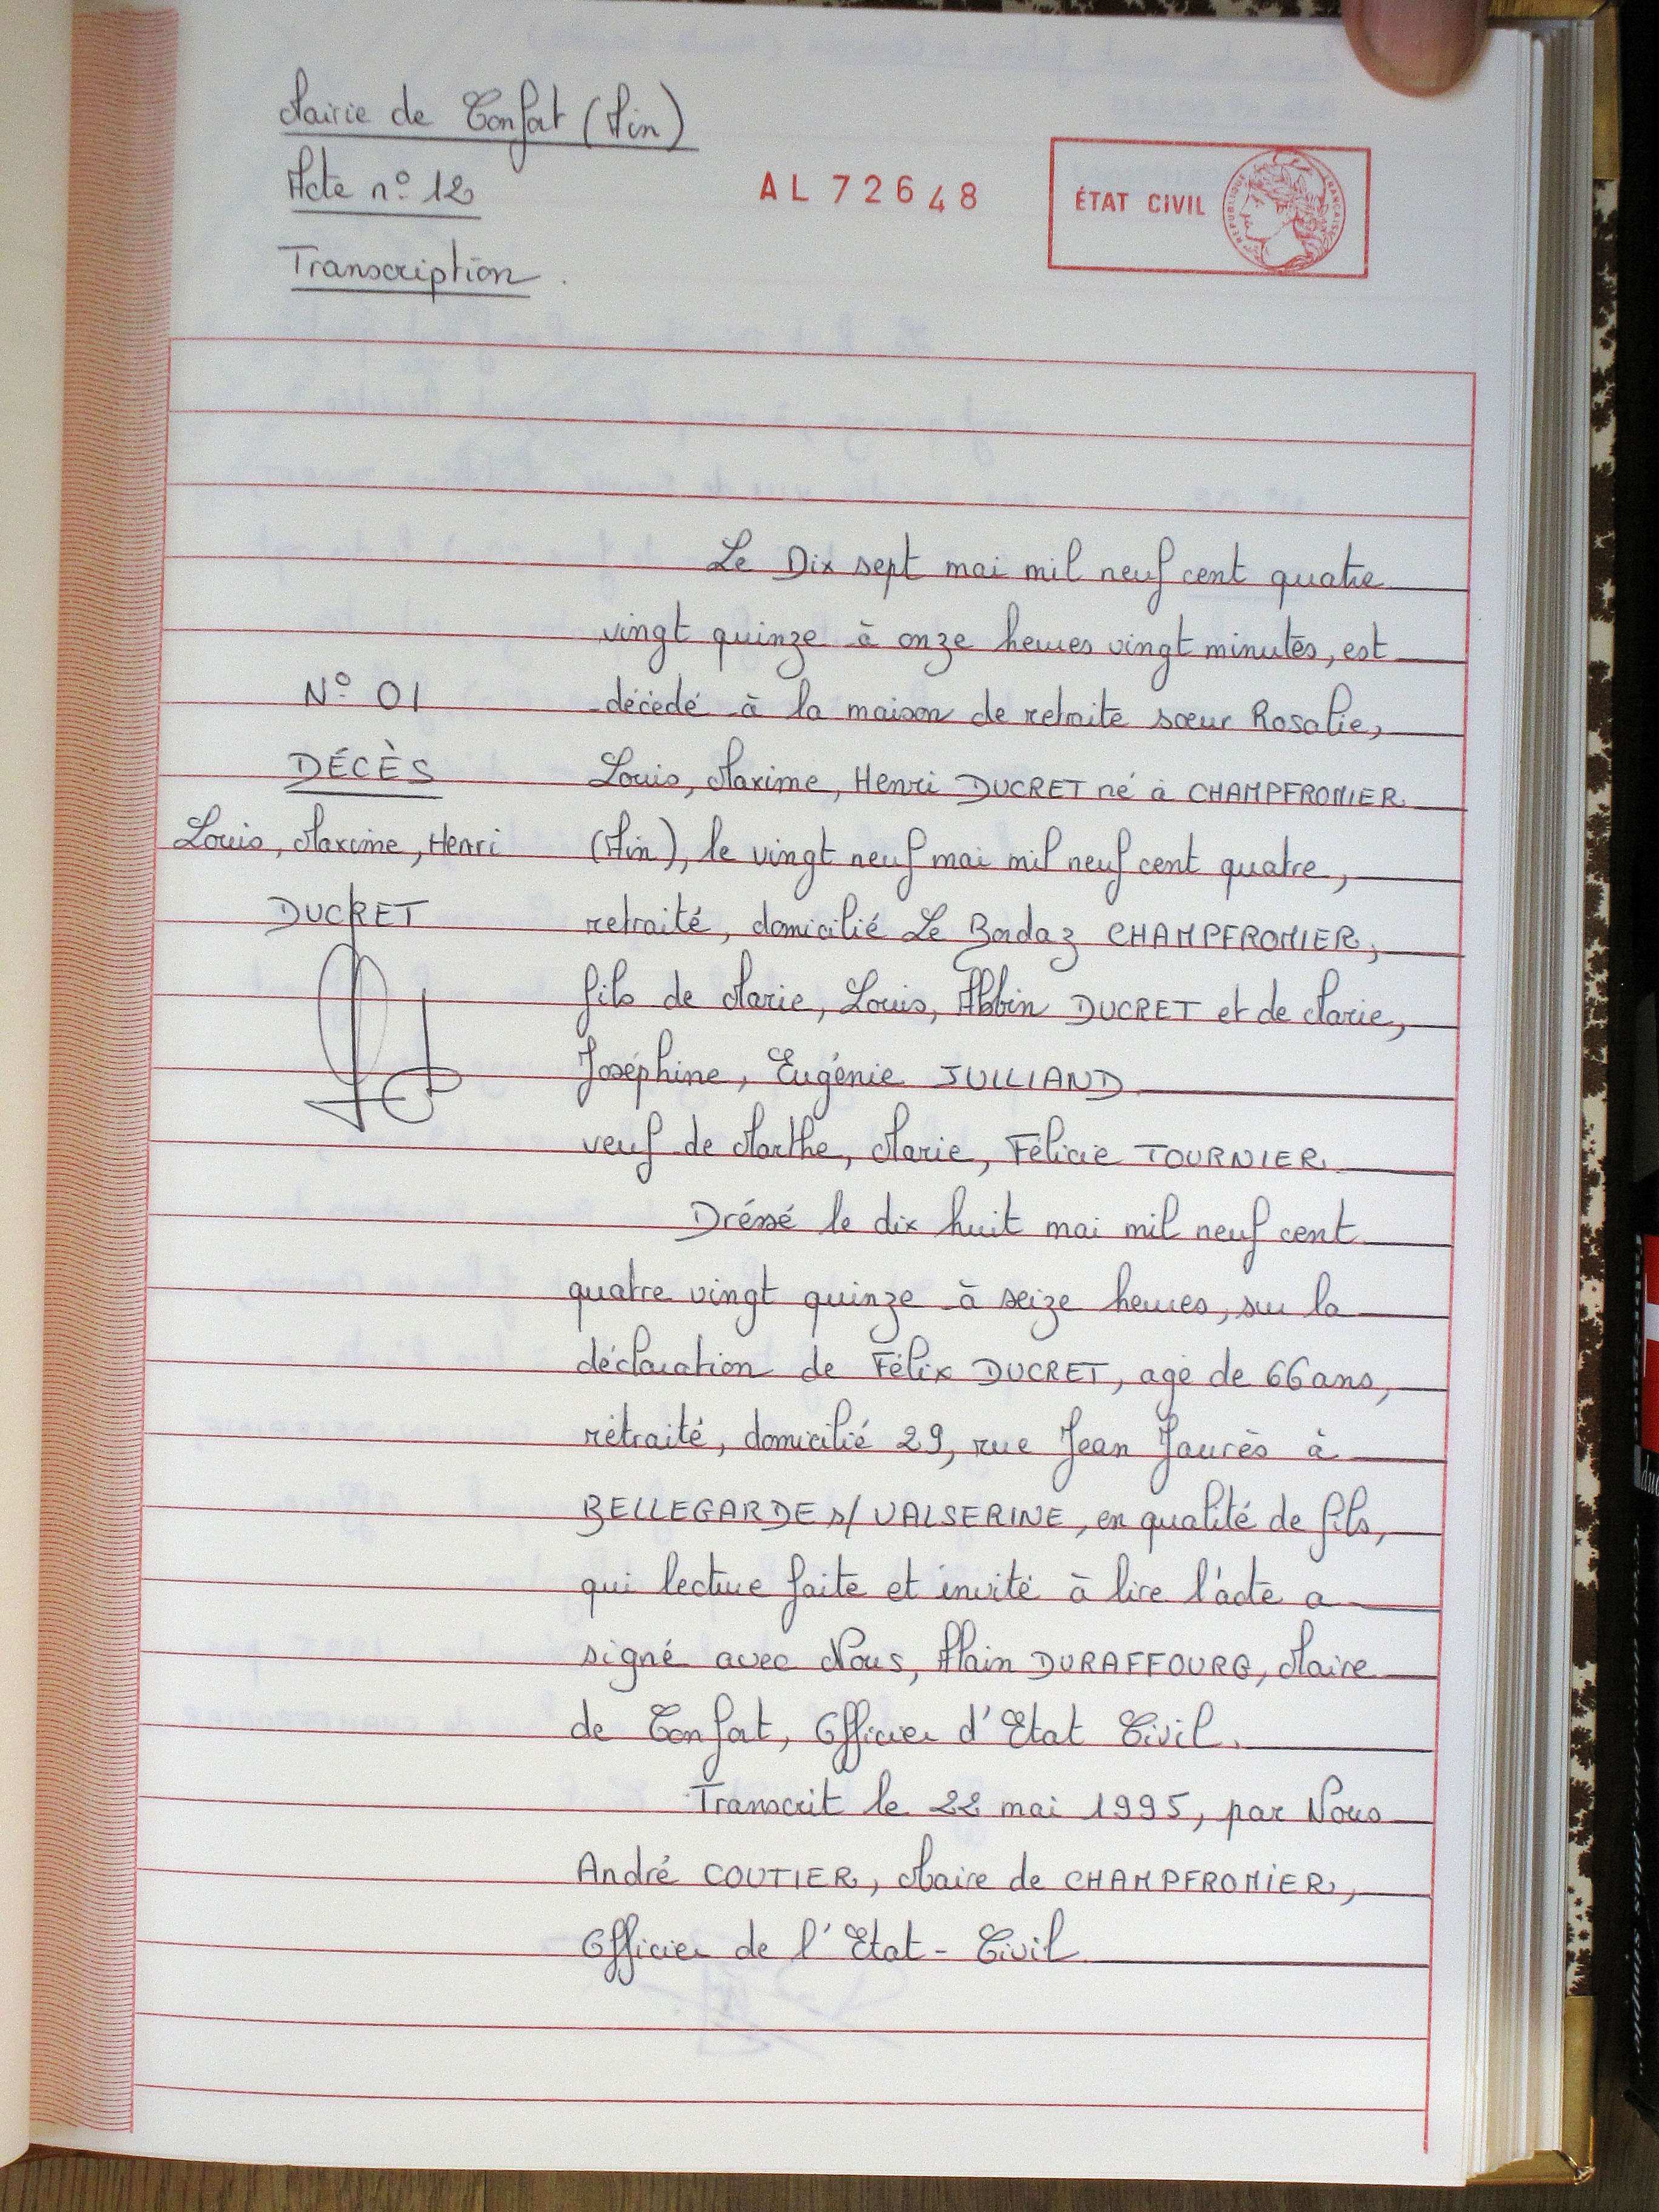 Mairie de Confort (Ain)
Acte n° 12
AL 72648
ÉTAT CIVIL
RÉPUBLIQUE FRANÇAISE
Transcription.
Le Dix sept mai mil neuf cent quatre
vingt quinze à onze heures vingt minutes, est
N° 01
décédé à la maison de retraite sœur Rosalie,
DÉCÈS
Louis, Maxime, Henri DUCRET né à CHAMPFROMIER
Louis, Maxime, Henri
(Ain), le vingt neuf mai mil neuf cent quatre,
DUCRET
retraité, domicilié Le Bordaz CHAMPFROMIER,
fils de Marie, Louis, Albin DUCRET et de Marie,
Joséphine, Eugénie JULLIAND
veuf de Marthe, Marie, Félicie TOURNIER
Dréssé le dix huit mai mil neuf cent
quatre vingt quinze à seize heures, sur la
déclaration de Félix DUCRET, agé de 66 ans,
rétraité, domicilié 29, rue Jean Jaurès à
BELLEGARDE s/ VALSERINE, en qualité de fils,
qui lecture faite et invité à lire l'acte a
signé avec Nous, Alain DURAFFOURG, Maire
de Confort, Officier d'Etat Civil.
Transcrit le 22 mai 1995, par Nous
André COUTIER, Maire de CHAMPFROMIER,
Officier de l'Etat-Civil